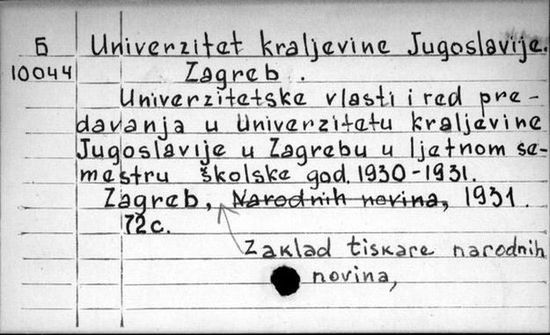 Б Univerzitet kraljevine Jugoslavije.
10044 Zagreb.
Univerzitetske vlasti i red pre-
davanja u Univerzitetu kraljevine
Jugoslavije u Zagrebu u ljetnom se-
mestru školske god. 1930-1931.
Zagreb, Narodnih novina, 1931.
72c.
Zaklad tiskare narodnih
novina,